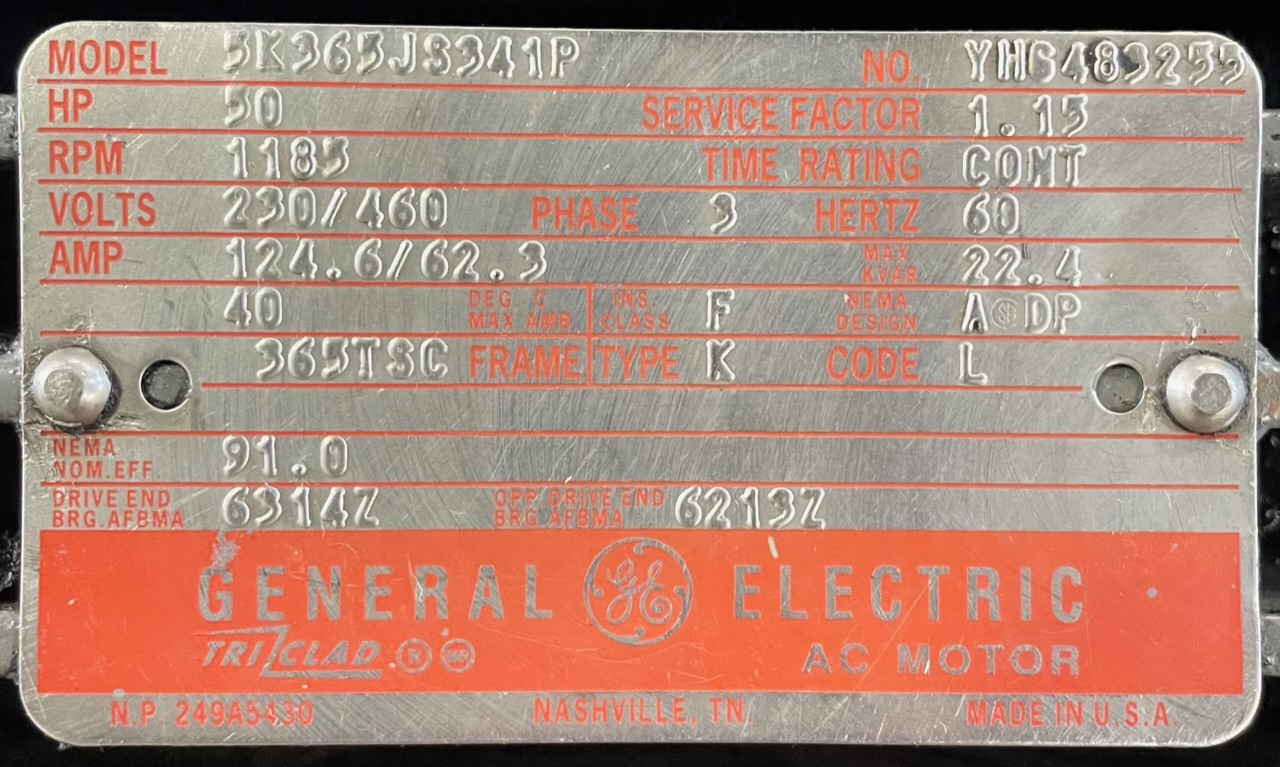 MODEL 5K365JS341P NO. YHS483255
HP 50 SERVICE FACTOR 1.15
RPM 1185 TIME RATING CONT
VOLTS 230/460 PHASE 3 HERTZ 60
AMP 124.6/62.3 MAX. KVAR 22.4
40 DEG. C MAX.AMB. INS. CLASS F NEMA DESIGN A DP
365TSC FRAME TYPE K CODE L
NEMA NOM.EFF. 91.0
DRIVE END BRG.AFBMA 6314Z OPP.DRIVE END BRG.AFBMA 6213Z
GENERAL GE ELECTRIC
TRI/CLAD ® AC MOTOR
N.P. 249A5430 NASHVILLE, TN. MADE IN U.S.A.